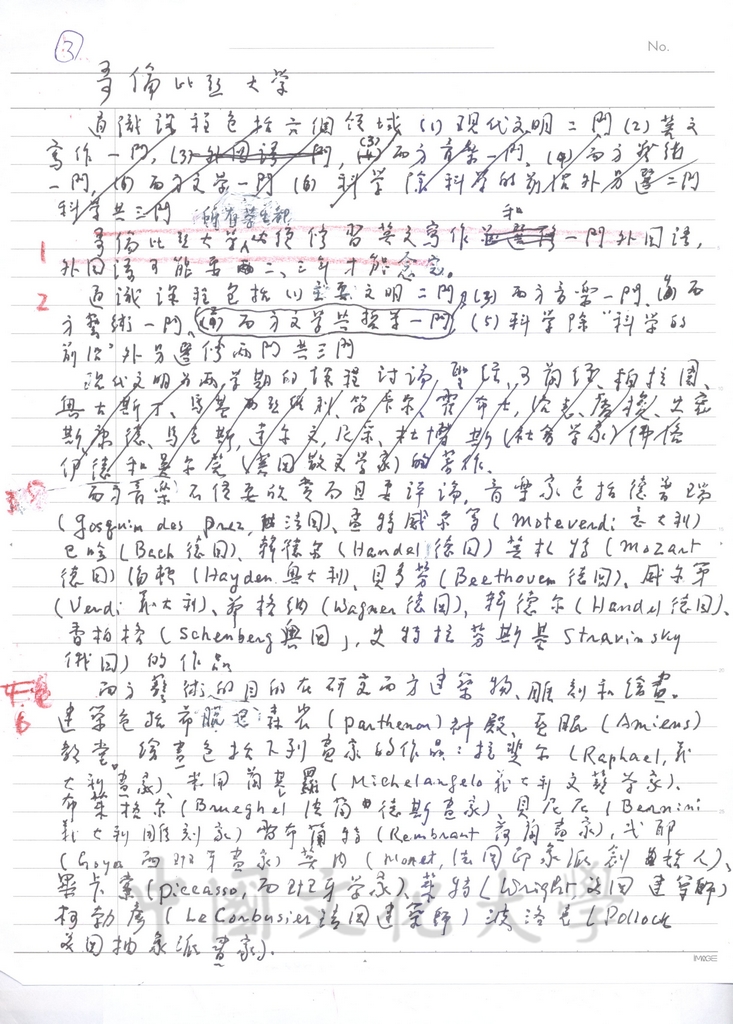 ③
No.
哥倫比亞大学
通識課程包括六個領域 (1) 現代文明二門 (2) 英文
寫作一門, (3) 外国語一門, (3) (4) 西方音樂一門, (4) 西方藝術
一門, (5) 西方文学一門 (6) 科学除科学的前沿外另選二門
科学共三門 所有学生都
1 哥倫比亞大学 必須修習英文寫作 和 一門外国語,
外国語可能要兩二、三年才能念完。
2 通識課程包括 (1) 主要文明二門, (3) 西方音樂一門, 西
方藝術一門, 西方文学共哲学一門, (5) 科学除"科学的
前沿"外另選修兩門共三門
現代文明為兩学期的課程討論, 聖經, 可蘭經, 柏拉圖、
奧古斯丁、馬基西亞維利、笛卡尔、霍布士, 洛克、盧梭、
斯 康德、馬克斯, 達尔文, 尼采、杜博斯 (社会学家) 佛洛
伊德和吳尔芙 (英国散文学家) 的著作。
西方音樂不僅要欣賞而且要評論, 音樂家包括德普瑞
(Josquim des Prez, 法国)、蒙特威尔第 (Moteverdi 意大利)
巴哈 (Bach 德国)、韓德尔 (Handel 德国) 莫札特 (Mozart
德国) 海頓 (Hayden 奧大利)、貝多芬 (Beethovem 德国)、威尔第
(Verdi 義大利)、華格納 (Wagner 德国)、韓德尔 (Handel 德国)、
香柏格 (Schenberg 奧国), 史特拉芬斯基 Stravinsky
俄国) 的作品
6 西方藝術的目的在研究西方建築物、雕刻和繪畫。
建築包括希腊 (parthenon) 神殿、亞眠 (Amiens)
教堂。繪畫包括下列畫家的作品: 拉斐尔 (Raphael, 義
大利畫家)、米開蘭基羅 (Michelangelo 義大利文藝学家)、
布萊格尔 (Brueghel 法蘭德斯畫家)、貝尼尼 (Bernini
義大利雕刻家) 雷布蘭特 (Rembrant 荷蘭畫家), 戈耶
(Goya 西班牙畫家) 莫內 (Monet, 法国印象派創始人)、
畢卡索 (piccasso, 西班牙学家)、萊特 (Wright 美国建筆師)
柯勃彥 (Le Corbusier 法国建築師) 波洛克 (Pollock
美国抽象派畫家).
中國文化大學
IMAGE